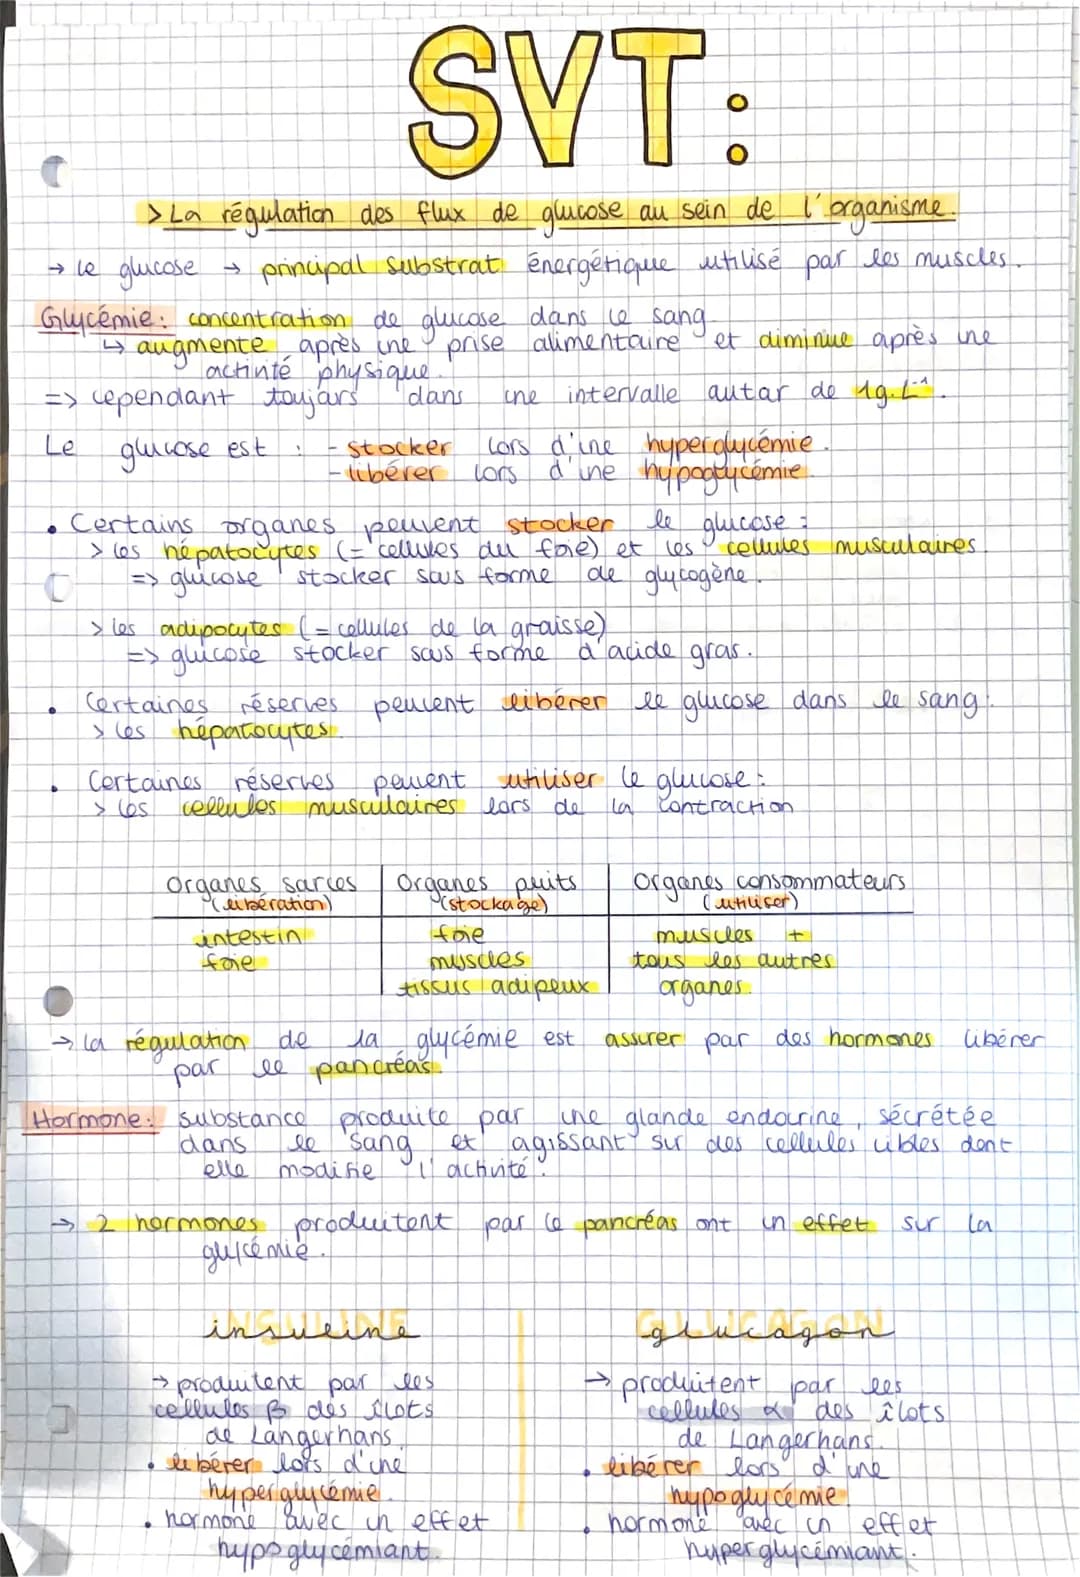 SVT:
> La régulation des flux de glucose au sein de l'organisme.
→ le glucose → principal substrat énergétique utilisé par les muscles.
Glycémie: concentration de glucose dans le sang.
↳ augmente après une prise alimentaire et diminue après une
activité physique.
=> cependant toujours dans une intervalle autour de 1g.L⁻¹.
Le glucose est : - stocker lors d'une hyperglycémie.
- libérer lors d'une hypoglycémie.
• Certains organes peuvent stocker le glucose :
> les hépatocytes (= cellules du foie) et les cellules musculaires.
=> glucose stocker sous forme de glycogène.
> les adipocytes (= cellules de la graisse)
=> glucose stocker sous forme d'acide gras.
• Certaines réserves peuvent libérer le glucose dans le sang:
> les hépatocytes.
• Certaines réserves peuvent utiliser le glucose :
> les cellules musculaires lors de la contraction
Organes sources | Organes puits | Organes consommateurs
(libération) | (stockage) | (utiliser)
intestin | foie | muscles +
foie | muscles | tous les autres
tissus adipeux | organes.
→ la régulation de la glycémie est assurer par des hormones libérer
par le pancréas.
Hormone: substance produite par une glande endocrine, sécrétée
dans le sang et agissant sur des cellules cibles dont
elle modifie l'activité.
→ 2 hormones produitent par le pancréas ont un effet sur la
glycémie.
INSULINE
insuline
→ produitent par les
cellules β des îlots
de Langerhans.
• libérer lors d'une
hyperglycémie.
• hormone avec un effet
hypoglycémiant.
GLUCAGON
glucagon
→ produitent par les
cellules α des îlots
de Langerhans.
• libérer lors d'une
hypoglycémie.
• hormone avec un effet
hyperglycémiant.